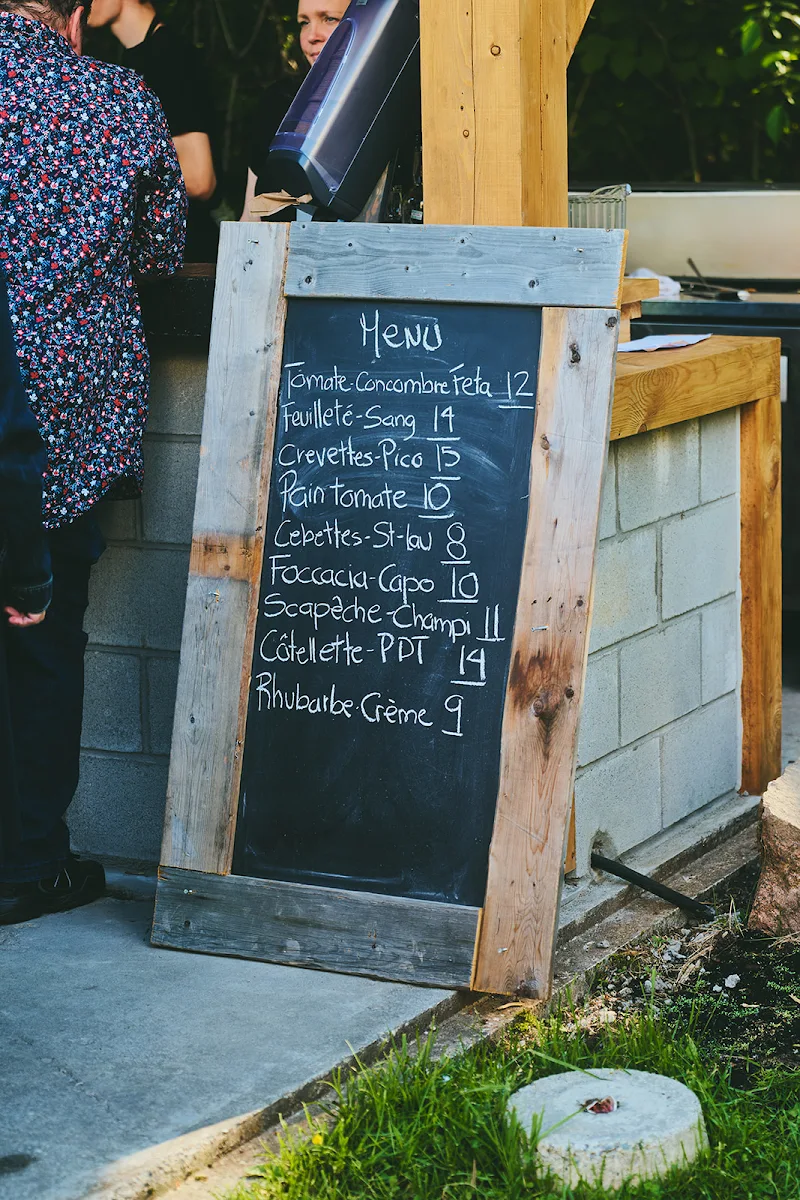 Menu
Tomate-Concombre Feta 12
Feuilleté-Sang 14
Crevettes-Pico 15
Pain tomate 10
Cebettes-St-lau 8
Foccacia-Capo 10
Scapêche-Champi 11
Côtellette-PDT 14
Rhubarbe-Crème 9